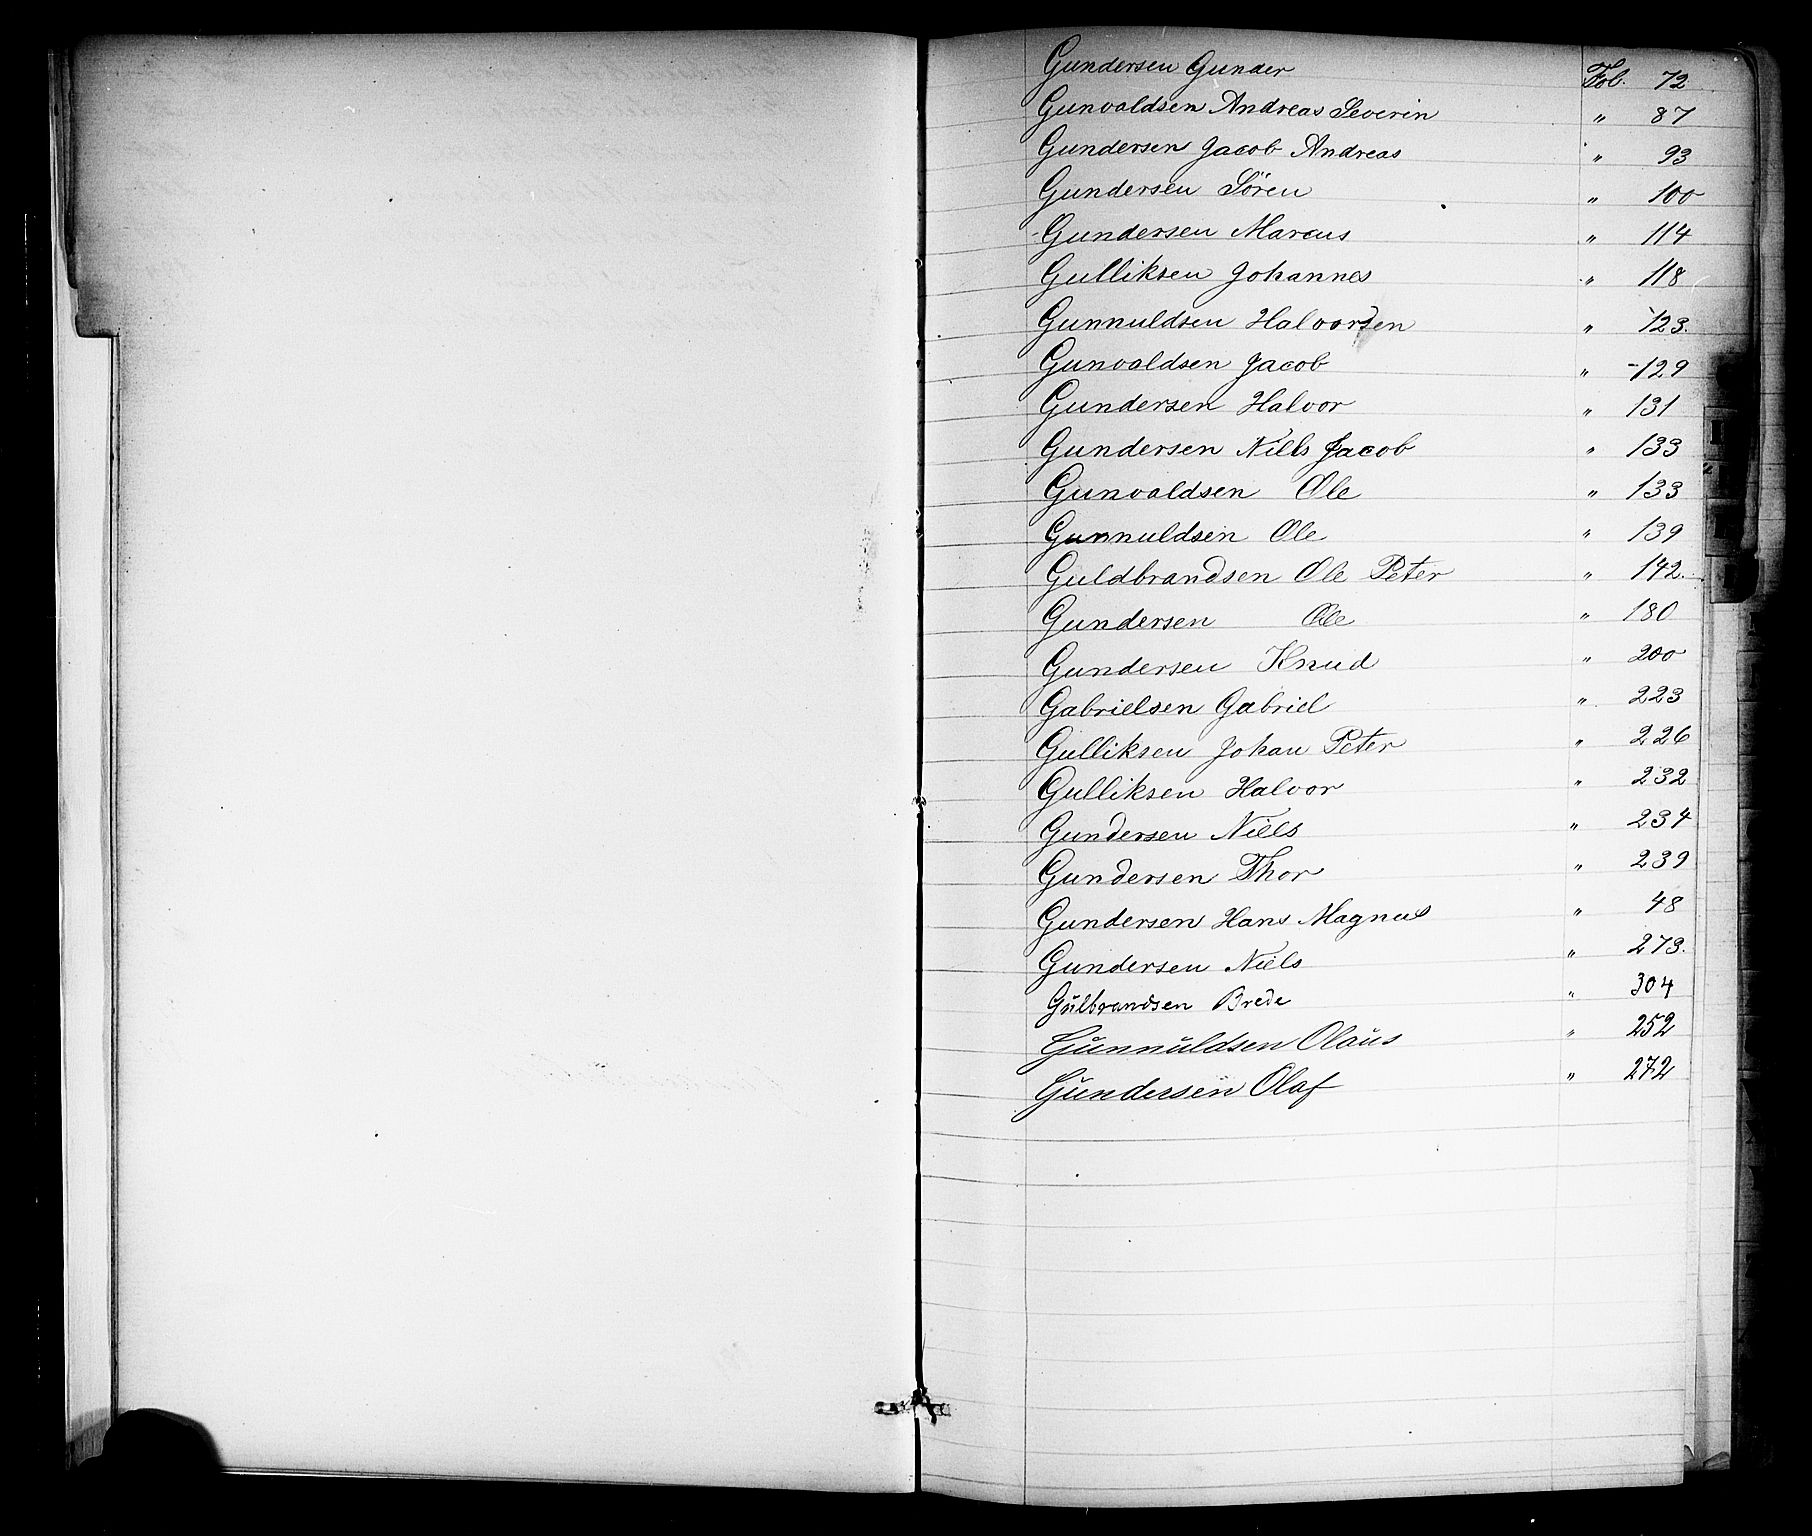 Gundersen Gunder Fol. 72
Gunvaldsen Andreas Severin " 87
Gundersen Jacob Andreas " 93
Gundersen Sören " 100
Gundersen Marcus " 114
Gulliksen Johannes " 118
Gunnuldsen Halvorsen " 123.
Gunvaldsen Jacob " 129
Gundersen Halvor " 131
Gundersen Niels Jacob " 133
Gunvaldsen Ole " 133
Gunnuldsen Ole " 139
Guldbrandsen Ole Peter " 142.
Gundersen Ole " 180
Gundersen Knud " 200
Gabrielsen Gabriel " 223
Gulliksen Johan Peter " 226
Gulliksen Halvor " 232
Gundersen Niels " 234
Gundersen Thor " 239
Gundersen Hans Magnus " 48
Gundersen Niels " 273.
Gulbrandsen Brede " 304
Gunnuldsen Olaus " 252
Gundersen Olaf " 272